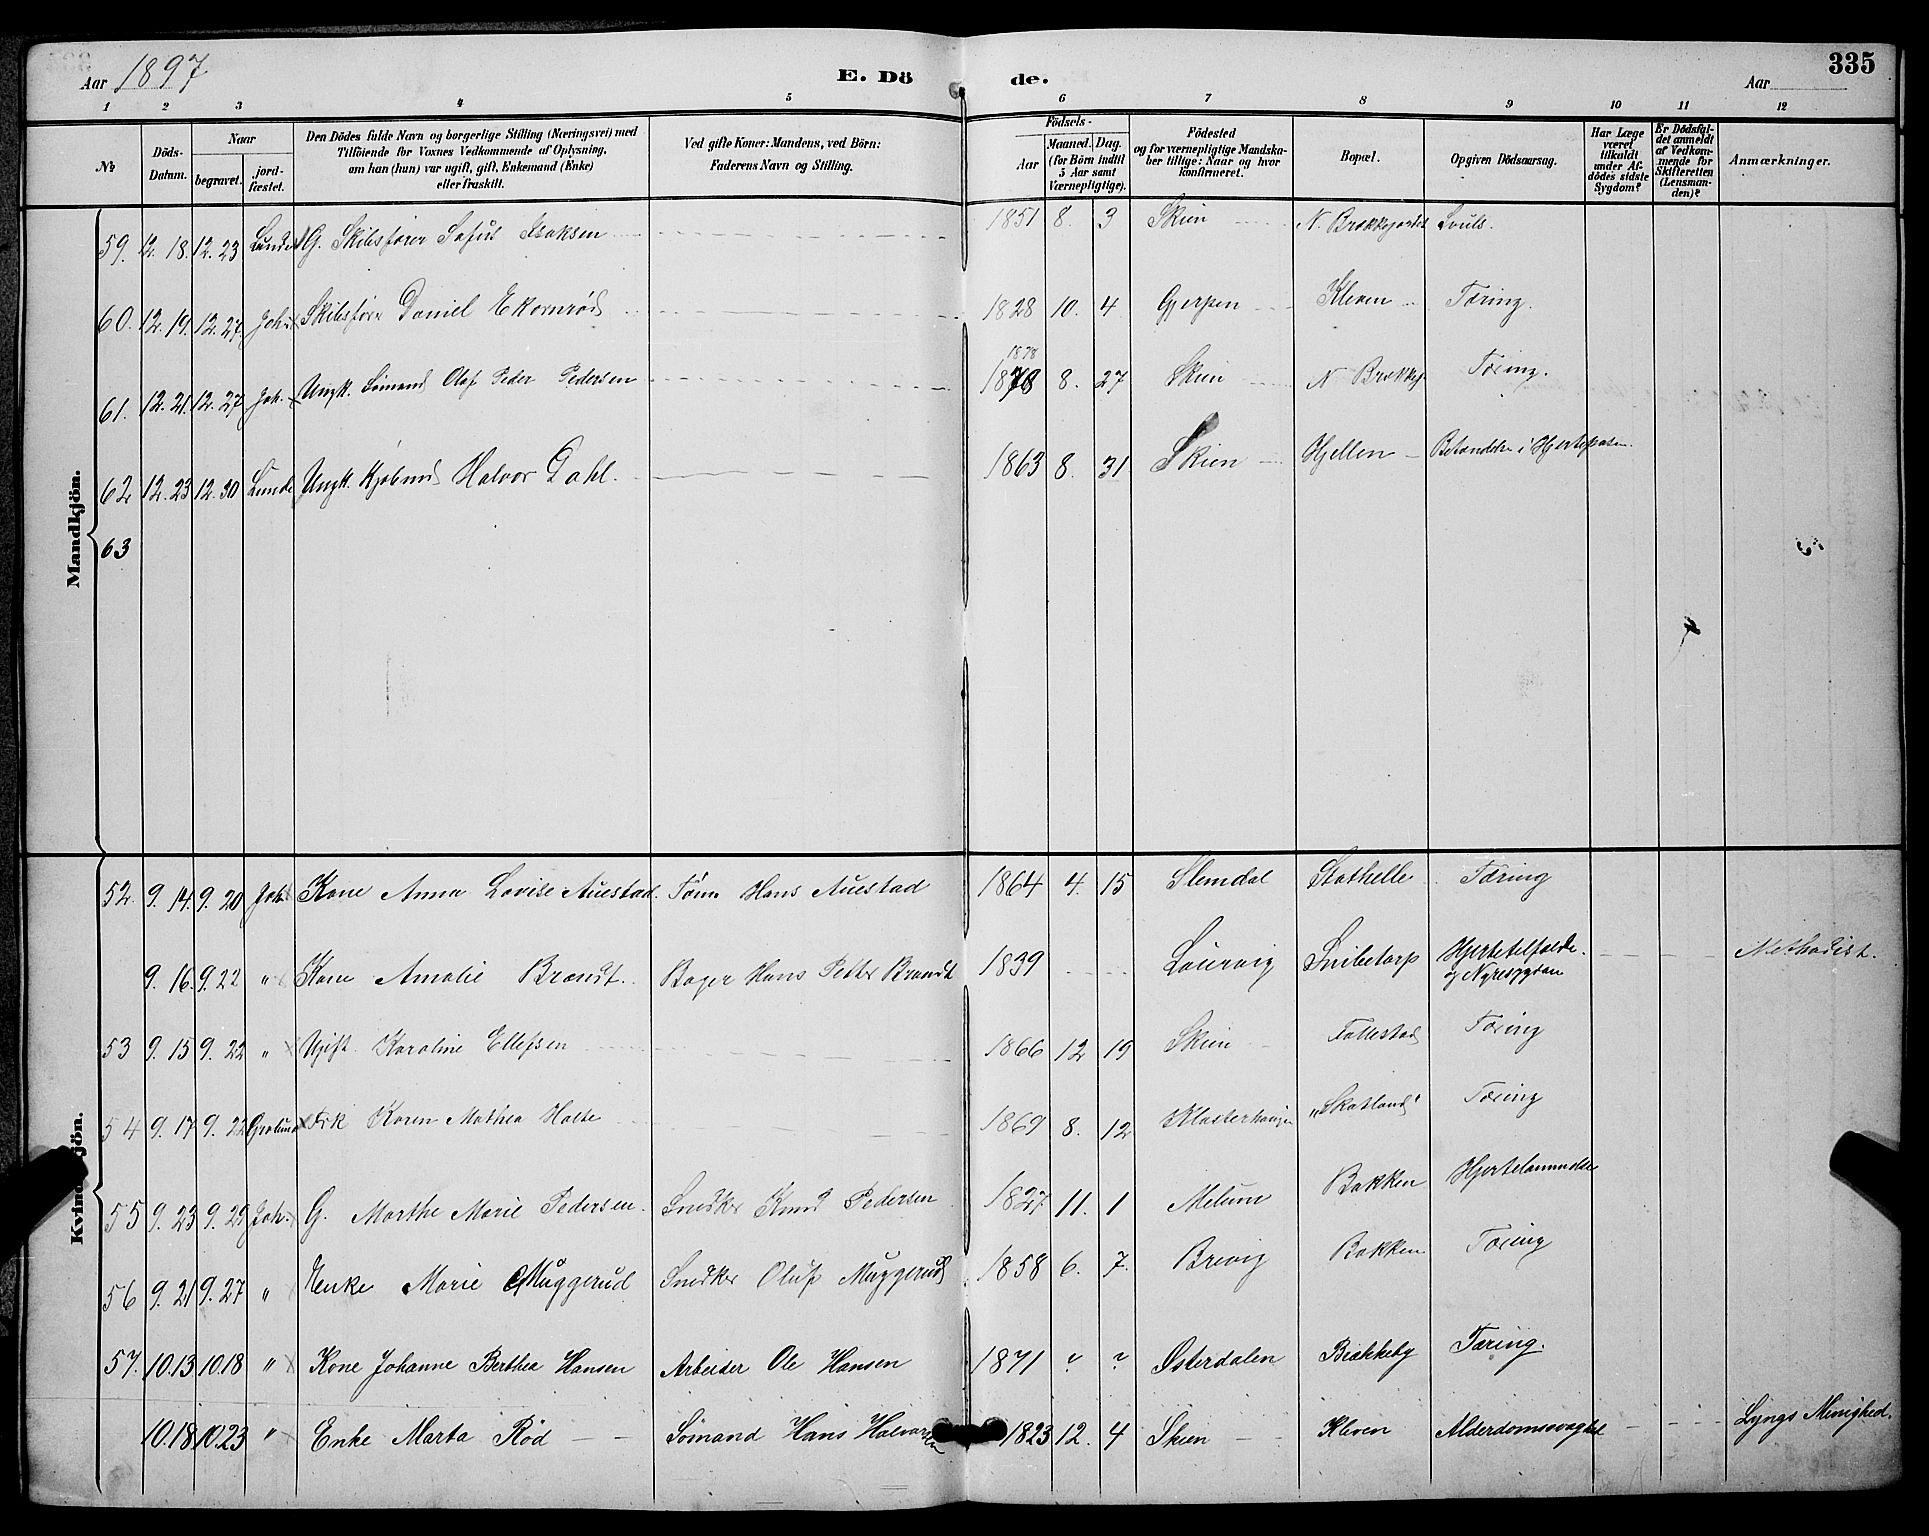 Aar 1897 E. Dö de. Aar 335
1 2 3 4 5 6 7 8 9 10 11 12
№ Döds-Datum. Naar begravet. jord-fæstet. Den Dödes fulde Navn og borgerlige Stilling (Næringsvei) med Tilföiende for Voxnes Vedkommende af Oplysning, om han (hun) var ugift, gift, Enkemand (Enke) eller fraskilt. Ved gifte Koner: Mandens, ved Börn: Faderens Navn og Stilling. Födsels- Aar Maaned. Dag. (for Börn indtil 5 Aar samt Værnepligtige). Födested og for værnepligtige Mandskaber tillige: Naar og hvor konfirmeret. Bopæl. Opgiven Dödsaarsag. Har Læge været tilkaldt under Afdödes sidste Sygdom? Er Dödsfaldet anmeldt af Vedkommende for Skifteretten (Lensmanden)? Anmærkninger.
Mandkjön.
59. 12. 18. 12. 23 Lunde G. Skibsfører Sofus Isaksen 1851 8. 3 Skien N. Brækkegaardst
60. 12. 19. 12. 27. Joh. Skibsfører Daniel Ekornrød 1828 10. 4 Gjerpen Kleven Tæring.
1878
61. 12. 21. 12. 27 Joh. Ungk. Sømand Olaf Peder Pedersen 1878 8. 27 Skien N Brækkeg Tæring.
62 12. 23 12. 30 Lunde Ungk. Kjøbmd Halvor Dahl. 1863 8. 31 Skien Hjellen Betændelse i Hjerteposen.
63
Kvindekjön.
52. 9. 14. 9. 20 Joh. Kone Anna Lovise Auestad. Tøm. Hans Auestad 1864 4. 15 Slemdal Stathelle Tæring
9. 16. 9. 22 " Kone Amalie Brandt. Bager Hans Petter Brandt 1839 Laurvig Snibetorp Hjertetilfælde. og Nyresygdom Methodist.
53 9. 15 9. 22 " Ugift. Karoline Ellefsen 1866 12 19 Skien Follestad Tæring
54 9. 17 9. 22 Frk Karen Mathea Holte 1869 8. 12 Klosterhaugen "Skotland" Tæring
55 9. 23 9. 29 Joh. G. Marthe Marie Pedersen. Snedker Knud Pedersen 1827. 11. 1 Melum Bakken Hjertelammelse
56 9. 21 9. 27 " Enke Marie Muggerud Snedker Oluf Muggerud 1858 6. 7. Brevig Bakken Tæring
57. 10. 13 10. 18 " Kone Johanne Berthea Hansen Arbeider Ole Hansen 1871 ? ? Østerdalen Brækkeby Tæring.
10. 18 10. 23 " Enke Marta Rød Sømand Hans Halvorsen 1823 12. 4 Skien Kleven Alderdomssvaghed Lyngs Menighed.